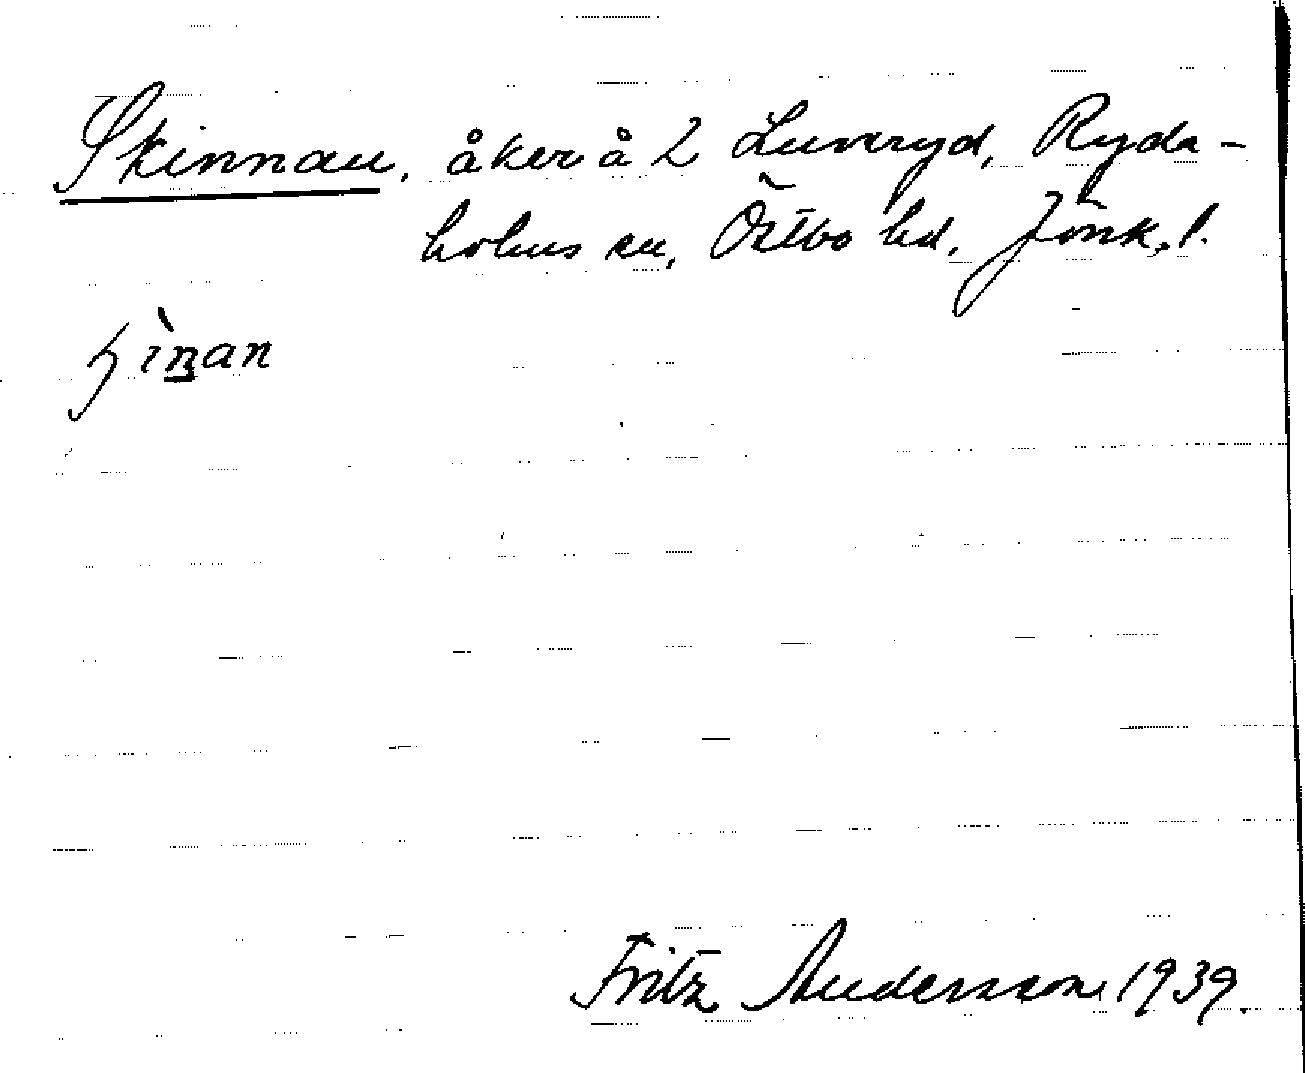 Skinnan, åker å 2 Luvaryd, Ryda-
holms sn, Östbo hd, Jönk. l.
Fritz Andersson 1939.